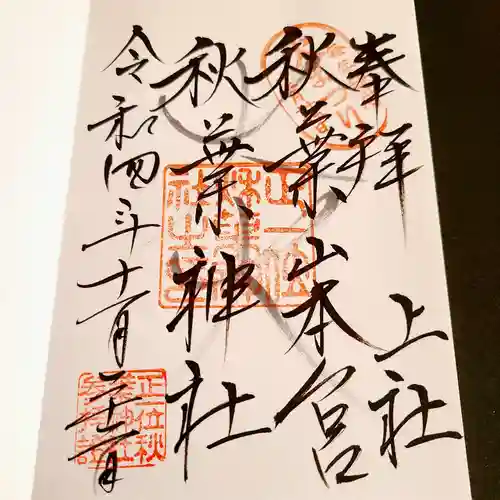 奉拝
上社
秋葉山本宮
秋葉神社
令和四年十一月二十一日
正一位秋
葉神社
参拝証